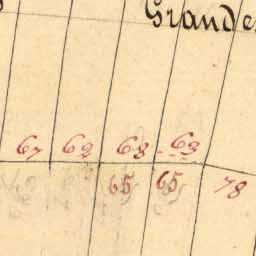 Grande
67 62 68 63
65 65 78